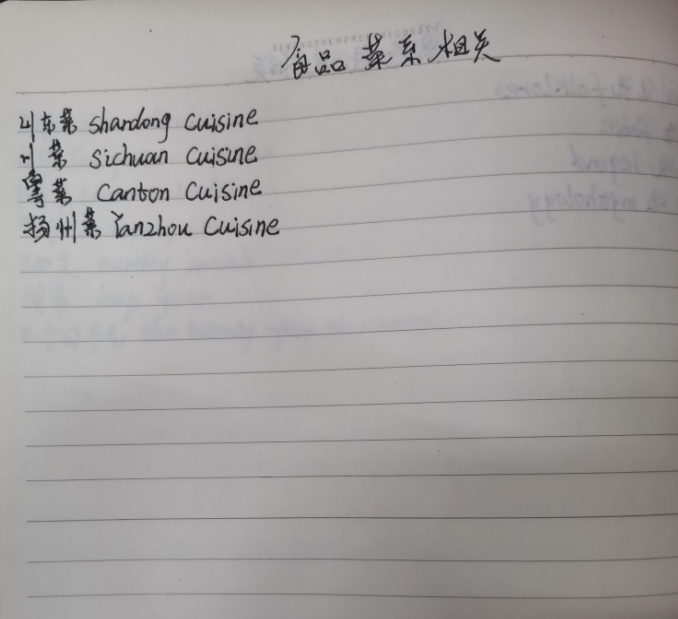 食品 菜系 相关
山东菜 Shandong Cuisine
川菜 Sichuan Cuisine
粤菜 Canton Cuisine
扬州菜 Yanzhou Cuisine
folklores
legend
mythology